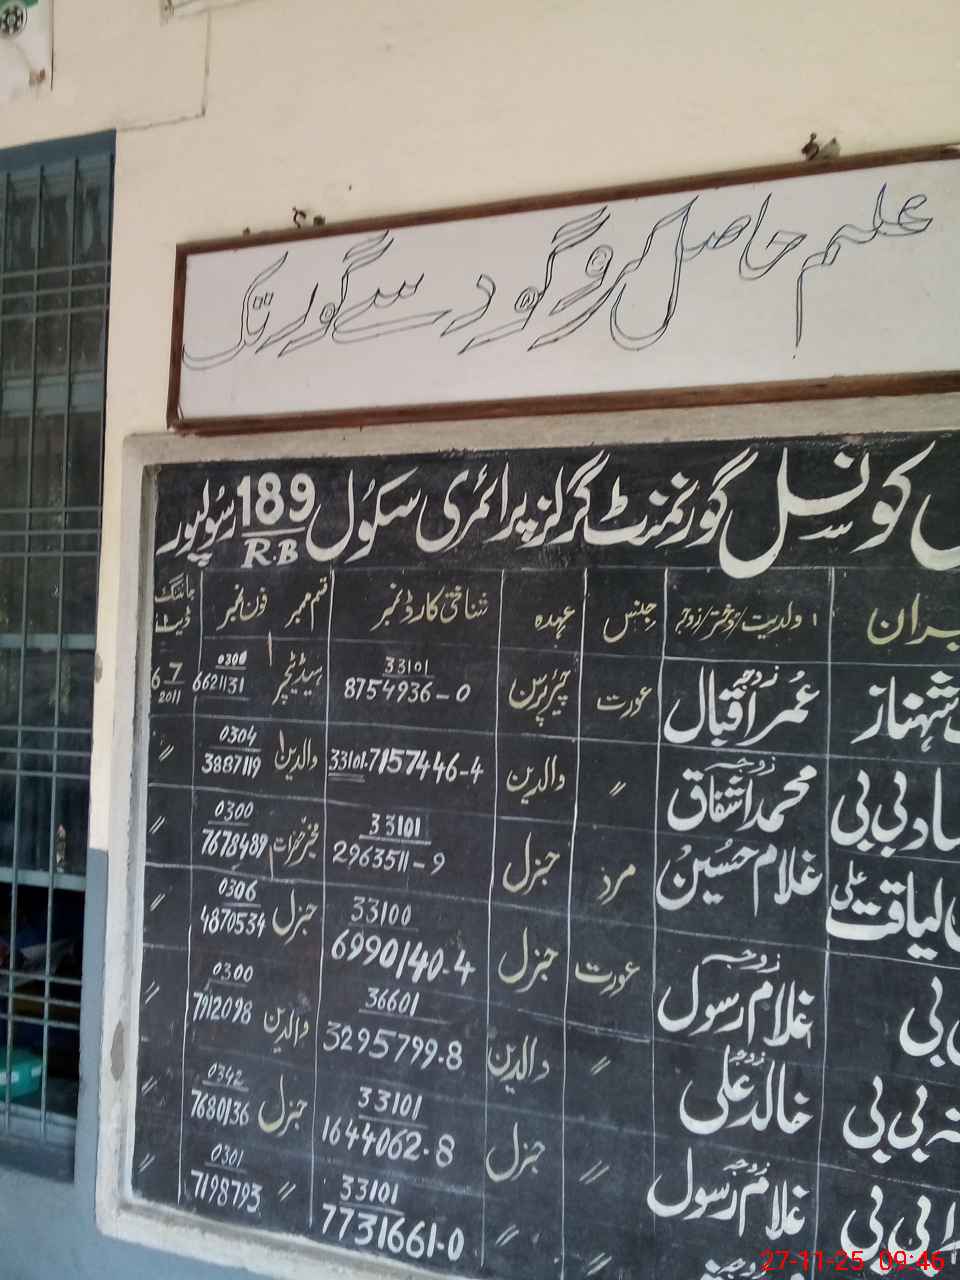 علم حاصل کرو گود سے گور تک
کونسل گورنمنٹ گرلز پرائمری سکول 189 R.B رسولپور
ولدیت/دختر/زوجہ جنس عہدہ شناختی کارڈ نمبر قسم ممبر فون نمبر جائننگ ڈیٹ
شہناز زوجہ عمر اقبال عورت چیئرپرسن 33101 8754936-0 ہیڈ ٹیچر 0306 6621131 6-7 2011
بی بی زوجہ محمد اشفاق 〃 والدین 33101-7157446-4 والدین 0304 3887119 〃
لیاقت علی غلام حسین مرد جنرل 33101 2963511-9 مخیر حضرات 0300 7678489 〃
بی زوجہ غلام رسول عورت جنرل 33100 6990140-4 جنرل 0306 4870534 〃
بی بی زوجہ خالد علی 〃 والدین 36601 3295799-8 والدین 0300 7912098 〃
بی بی زوجہ غلام رسول 〃 جنرل 33101 1644062-8 جنرل 0342 7680136 〃
زوجہ 〃 〃 33101 7731661-0 〃 0301 7198793 〃
27-11-25 09:46